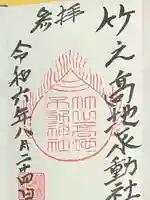 参拝
竹之高地不動社
令和六年八月二十四日
竹之高地
不動神社